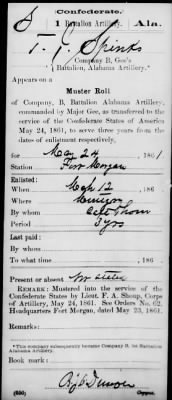 Confederate.
S 1 Battalion Artillery. Ala.
T. J. Spinks
Company B, Gee's
Battalion, Alabama Artillery.*
Appears on a
Muster Roll
of Company, B, Battalion Alabama Artillery,
commanded by Major Gee, as transferred to the
service of the Confederate States of America
May 24, 1861, to serve three years from the
dates of enlistment respectively,
for May 24, 1861
Station Fort Morgan
Enlisted:
When Mch 12, 186
Where
By whom
Period 3 yrs
Last paid:
By whom
To what time , 186 .
Present or absent Not stated
REMARK: Mustered into the service of the
Confederate States by Lieut. F. A. Shoup, Corps
of Artillery, May 24, 1861. See Orders No. 62,
Headquarters Fort Morgan, dated May 23, 1861.
Remarks:
*This company subsequently became Company B, 1st Battalion
Alabama Artillery.
Book mark:
(650) Copyist.